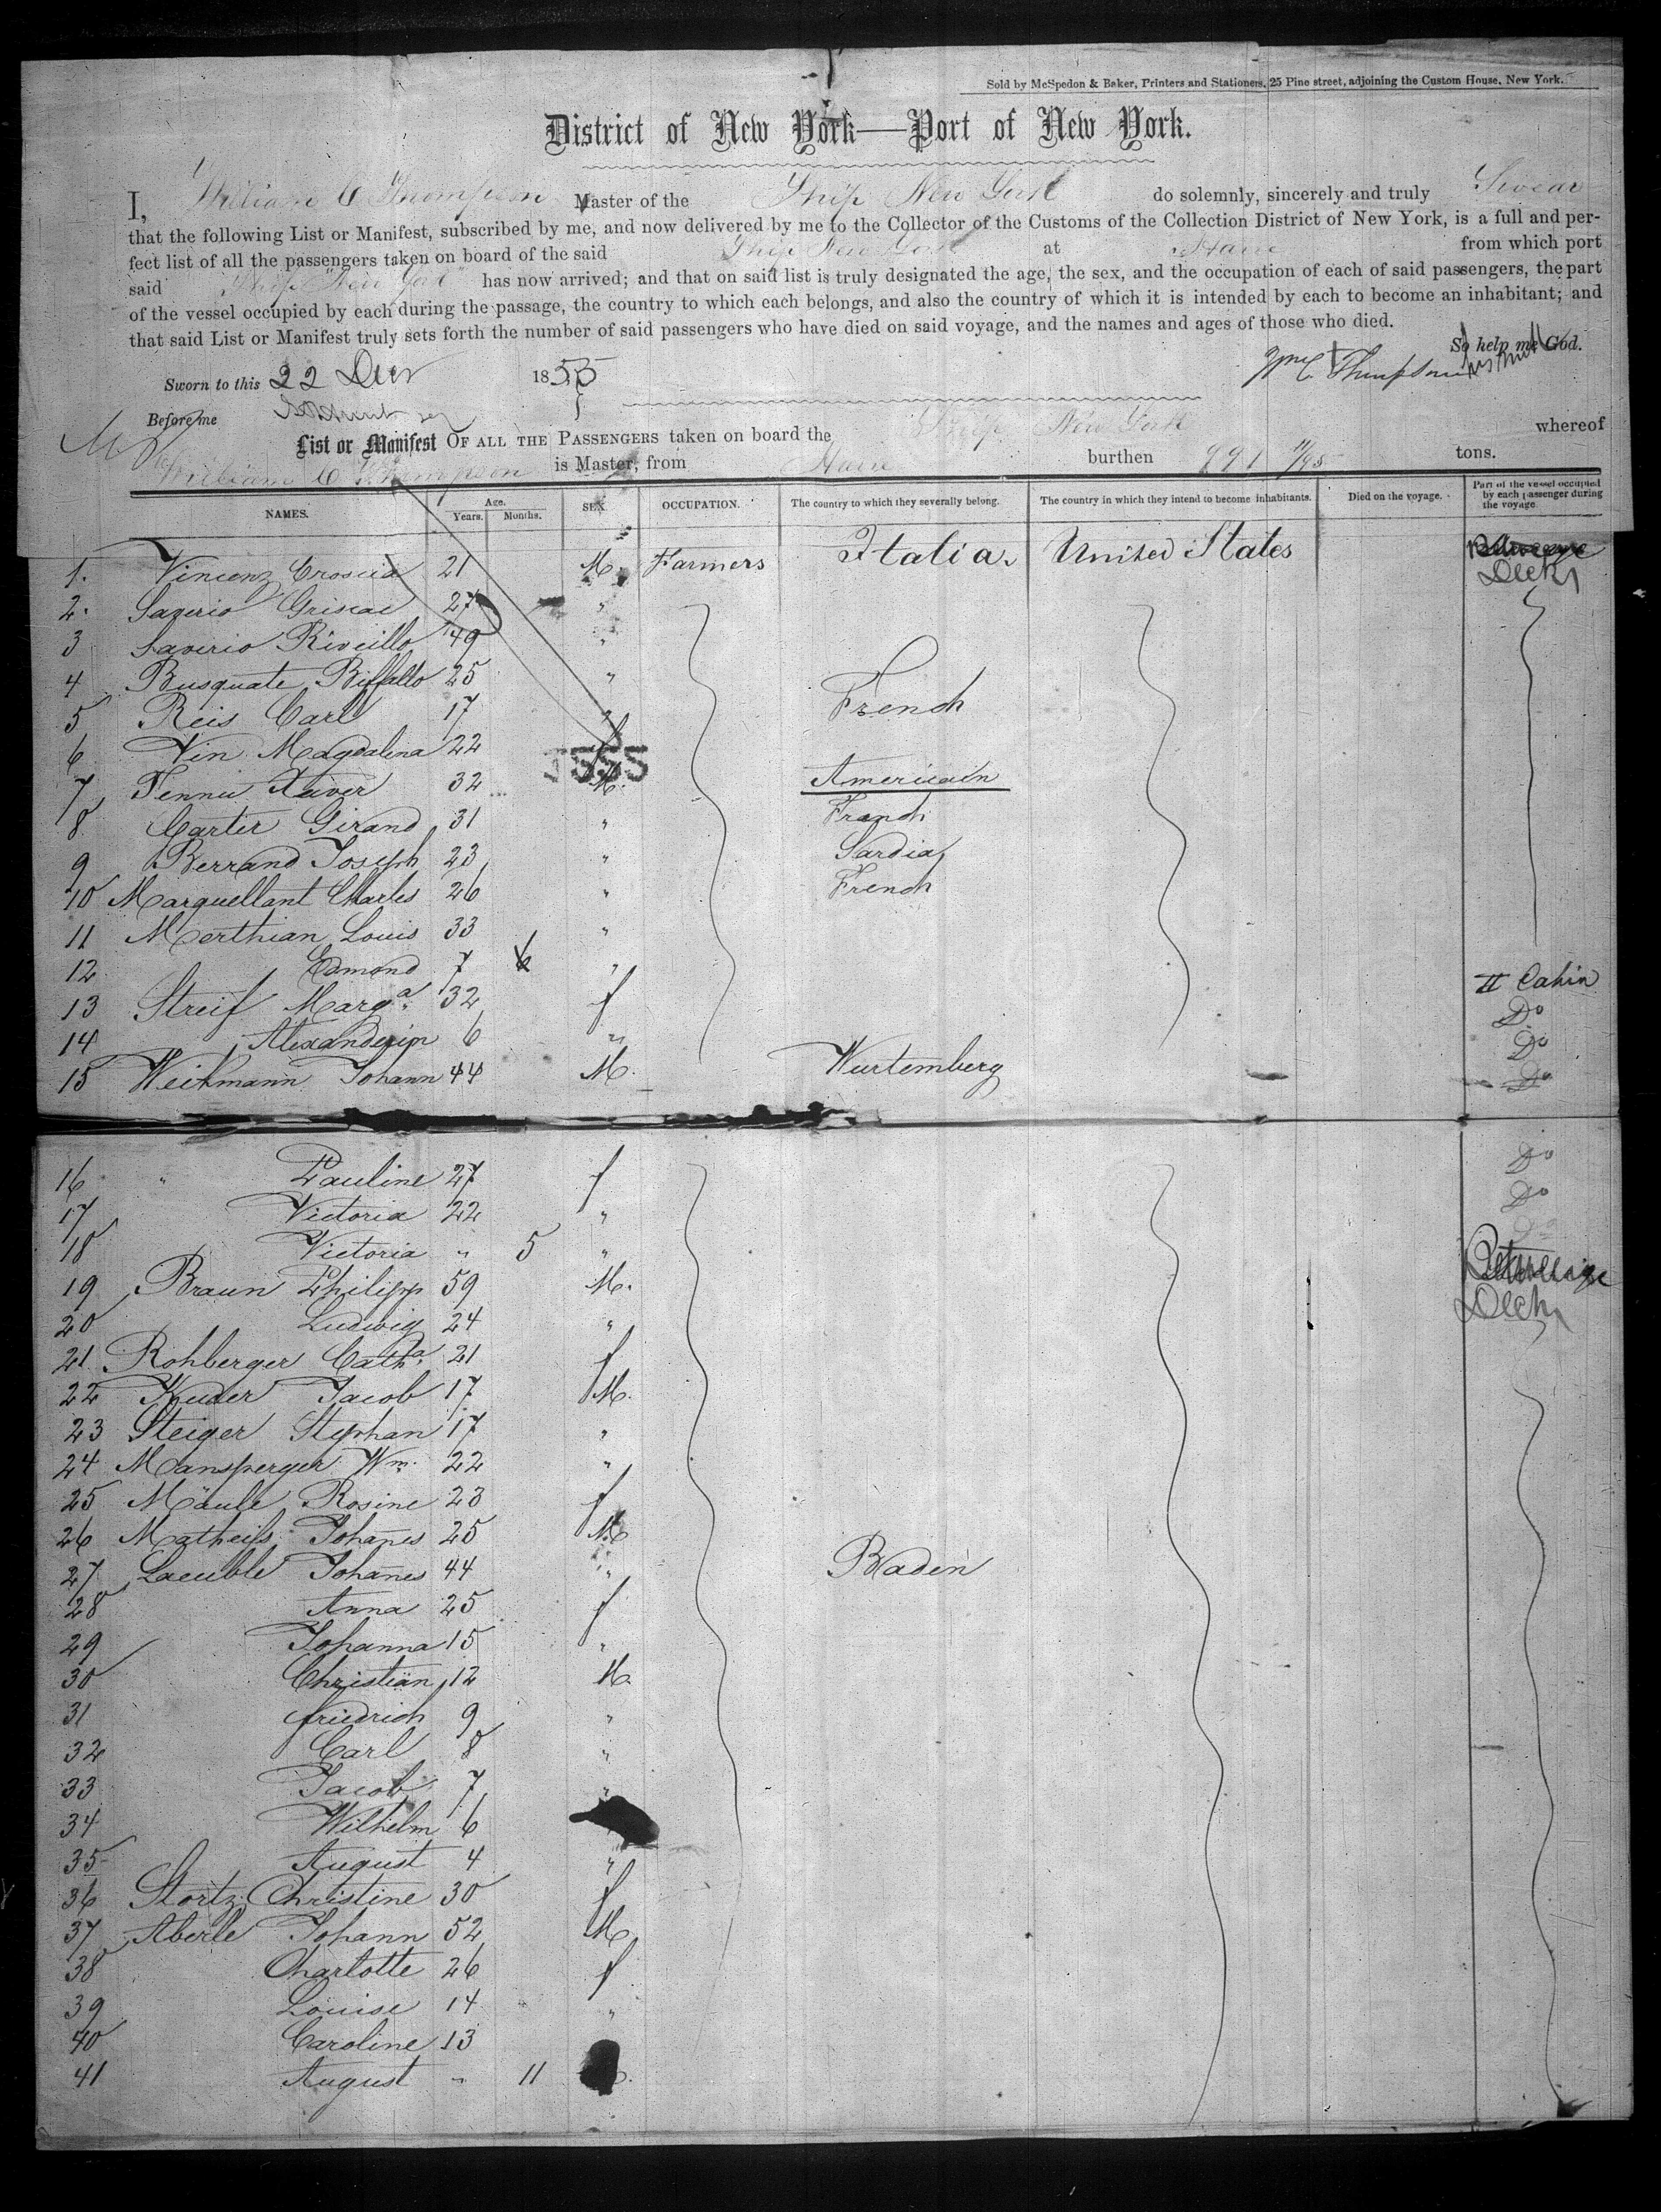 Sold by McSpedon & Baker, Printers and Stationers, 25 Pine street, adjoining the Custom House, New York.
District of New York—Port of New York.
I, William C Thompson Master of the Ship New York do solemnly, sincerely and truly Swear
that the following List or Manifest, subscribed by me, and now delivered by me to the Collector of the Customs of the Collection District of New York, is a full and per-
fect list of all the passengers taken on board of the said Ship New York at Havre from which port
said Ship "New York" has now arrived; and that on said list is truly designated the age, the sex, and the occupation of each of said passengers, the part
of the vessel occupied by each during the passage, the country to which each belongs, and also the country of which it is intended by each to become an inhabitant; and
that said List or Manifest truly sets forth the number of said passengers who have died on said voyage, and the names and ages of those who died.
So help me God.
Sworn to this 22 Decr 1855 Wm C Thompson
Before me
List or Manifest OF ALL THE PASSENGERS taken on board the Ship New York whereof
William C Thompson is Master, from Havre burthen 991 11/95 tons.
NAMES. Age. Years. Months. SEX. OCCUPATION. The country to which they severally belong. The country in which they intend to become inhabitants. Died on the voyage. Part of the vessel occupied by each passenger during the voyage.
1. Vincenz Croscia 21 M. Farmers Italia. United States Deck
2. Saverio Griscai 27 "
3 Saverio Riveillo 49 "
4 Busquate Biffallo 25 "
5 Reis Carl 17 " French
6 Vin Magdalena 22 f
7 Tennie Xaver 32 M. Americain
8 Cartier Girand 31 " French
9 Berrand Joseph 23 " Sardia
10 Marquellant Charles 26 " French
11 Merthian Louis 33 "
12 Edmond 7 "
13 Streif Marga. 32 f II Cabin
14 Alexanderin 6 " Do
15 Weikmann Johann 44 M. Wurtemberg Do
Do
16 " Pauline 27 f Do
17 Victoria 22 " Do
18 Victoria " 5 " Do
19 Braun Philipp 59 M.
20 Ludwig 24 " Deck
21 Rohberger Catha. 21 f
22 Kuder Jacob 17 M.
23 Steiger Stephan 17 "
24 Mansperger Wm. 22 "
25 Mäule Rosine 23 f
26 Matheiß Johanes 25 M
27 Laeuble Johanes 44 " Baden
28 Anna 25 f
29 Johanna 15 "
30 Christian 12 M.
31 friedrich 9 "
32 Carl 8 "
33 Jacob 7 "
34 Wilhelm 6
35 August 4 "
36 Stortz Christine 30 f
37 Aberle Johann 52 M
38 Charlotte 26 f
39 Louise 14 "
40 Caroline 13
41 August " 11